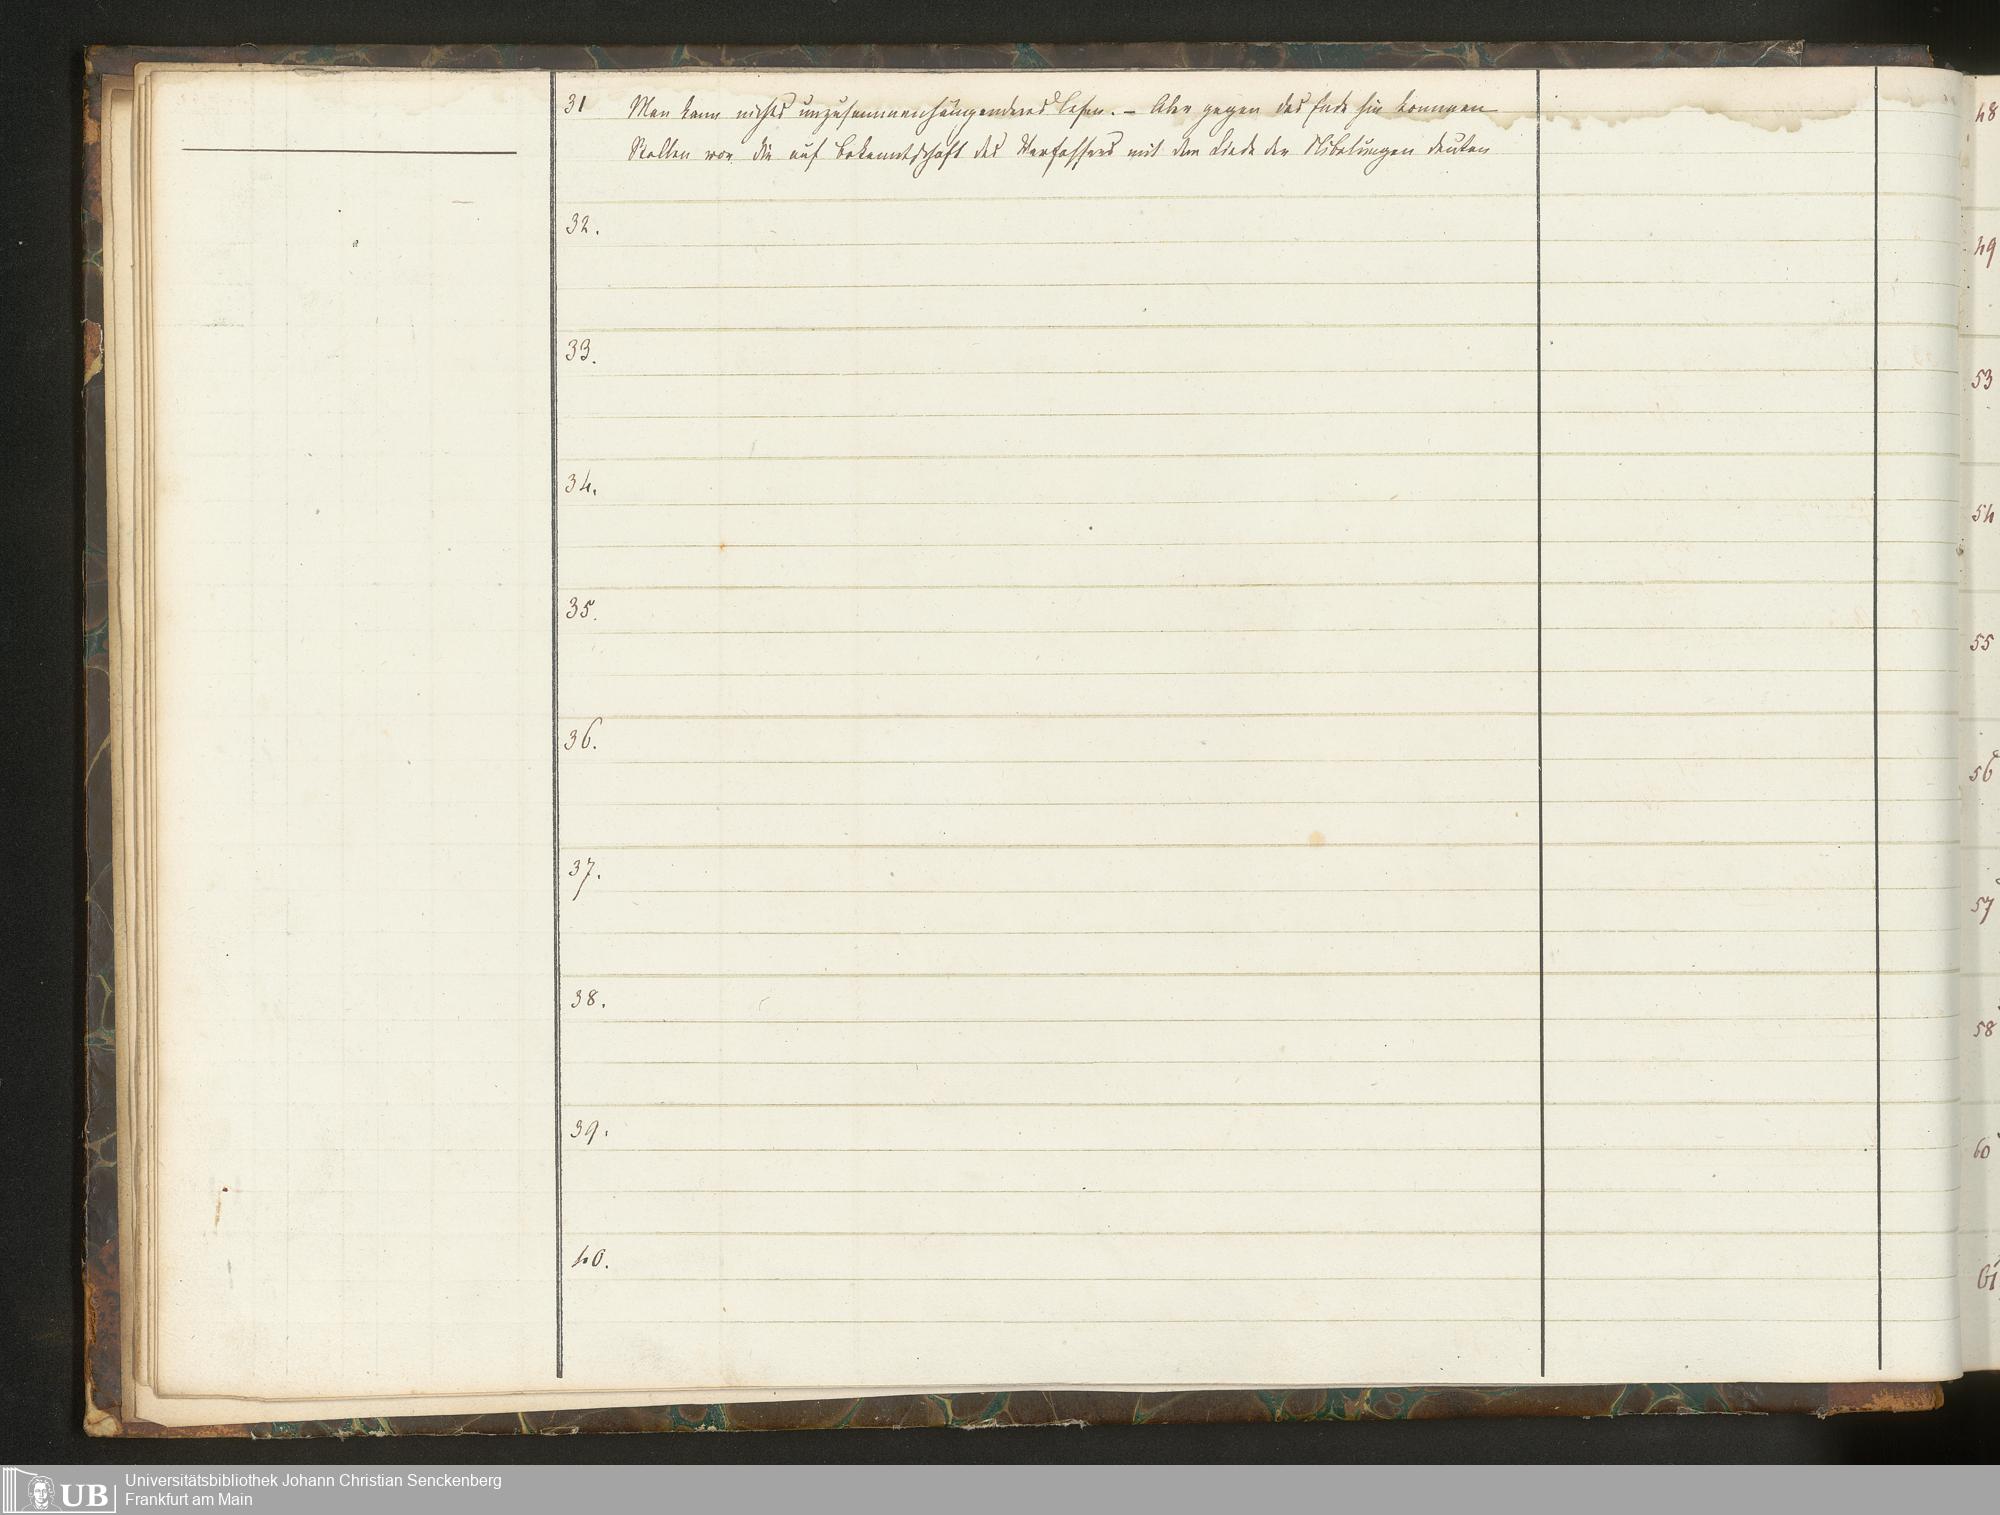 31 Man kann nichts unzusammenhängenderes lesen. – Aber gegen das Ende hin kommen
Stellen vor die auf Bekanntschaft des Verfassers mit dem Liede der Nibelungen deuten
32.
33.
34.
35.
36.
37.
38.
39.
40.
48
49
53
54
55
56
57
58
60
61
UB
Universitätsbibliothek Johann Christian Senckenberg
Frankfurt am Main